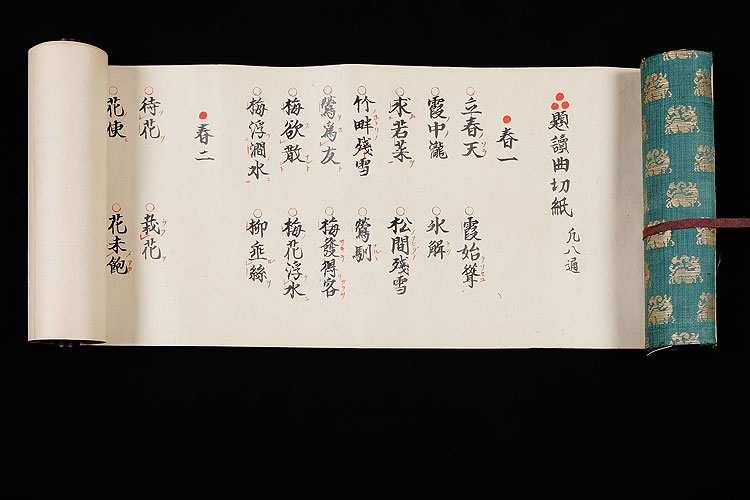 題讀曲切紙 凡八通
春一
立春天 霞始聳
霞中瀧 氷解
求若菜 松間残雪
竹畔残雪 鶯馴
鶯為友 梅發得客
梅欲散 梅花浮水
梅浮澗水 柳垂絲
春二
待花 栽花
花使 花未飽